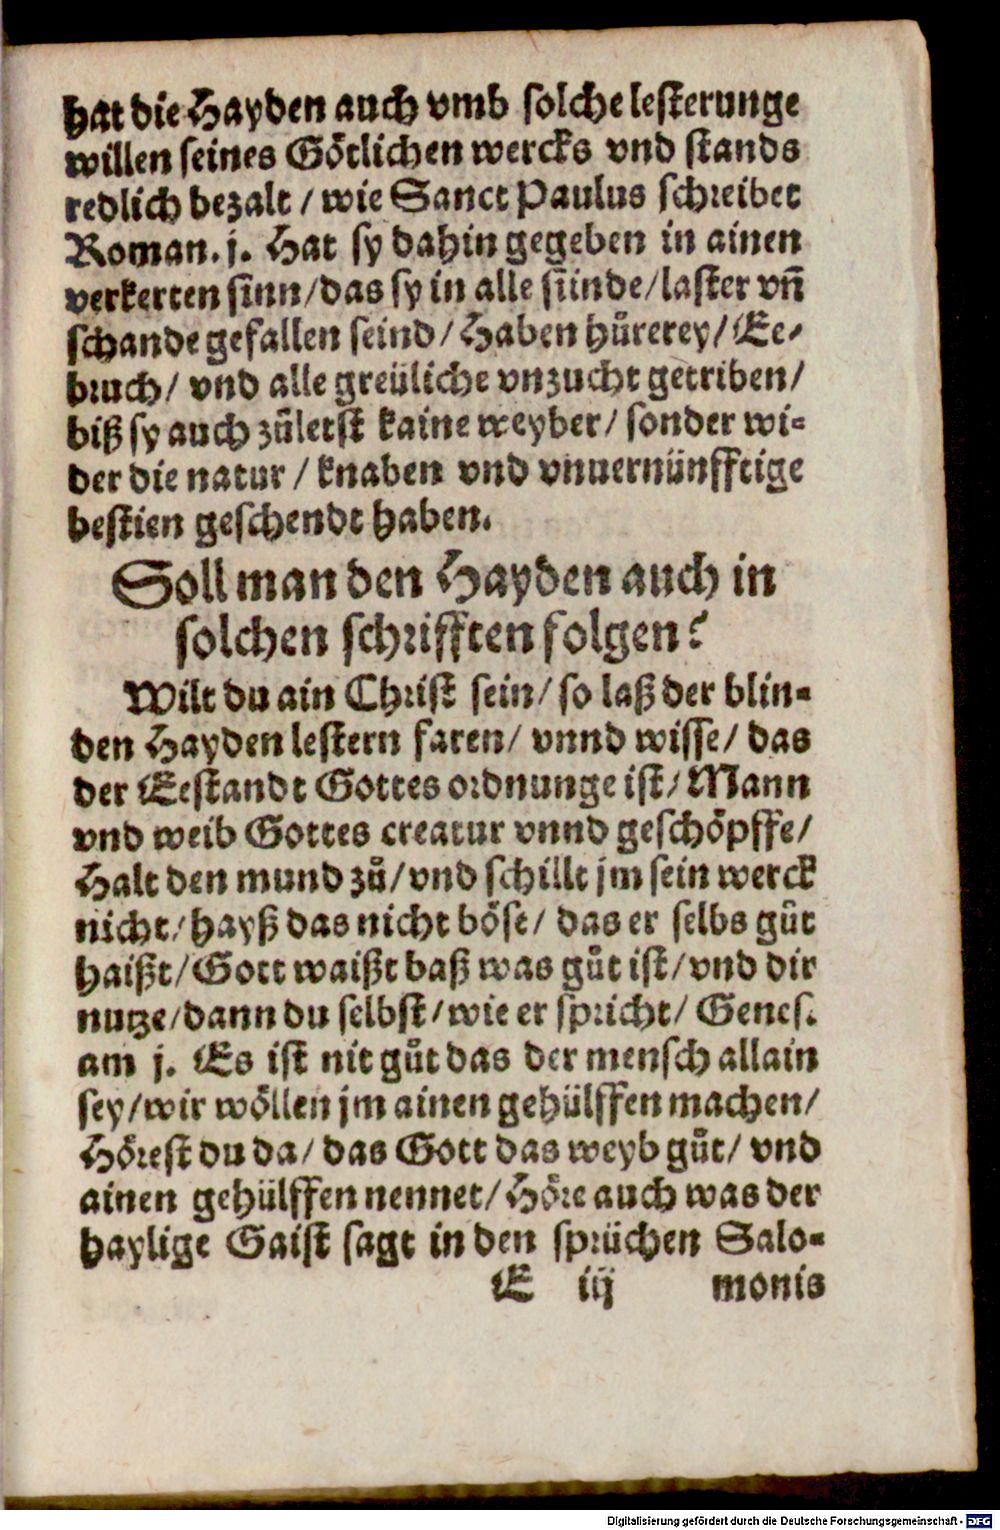 hat die Hayden auch vmb solche lesterunge
willen seines Götlichen wercks vnd stands
redlich bezalt / wie Sanct Paulus schreibet
Roman. j. Hat sy dahin gegeben in ainen
verkerten sinn / das sy in alle sünde / laster vñ
schande gefallen seind / Haben hůrerey / Ee-
bruch / vnd alle greüliche vnzucht getriben /
biß sy auch zůletst kaine weyber / sonder wi-
der die natur / knaben vnd vnuernünfftige
bestien geschendt haben.
Soll man den Hayden auch in
solchen schrifften folgen?
Wilt du ain Christ sein / so laß der blin-
den Hayden lestern faren / vnnd wisse / das
der Eestandt Gottes ordnunge ist / Mann
vnd weib Gottes creatur vnnd geschöpffe /
Halt den mund zů / vnd schillt jm sein werck
nicht / hayß das nicht böse / das er selbs gůt
haißt / Gott waißt baß was gůt ist / vnd dir
nutze / dann du selbst / wie er spricht / Genes.
am j. Es ist nit gůt das der mensch allain
sey / wir wöllen jm ainen gehülffen machen /
Hörest du da / das Gott das weyb gůt / vnd
ainen gehülffen nennet / Höre auch was der
haylige Gaist sagt in den sprüchen Salo-
E iij monis
Digitalisierung gefördert durch die Deutsche Forschungsgemeinschaft - DFG